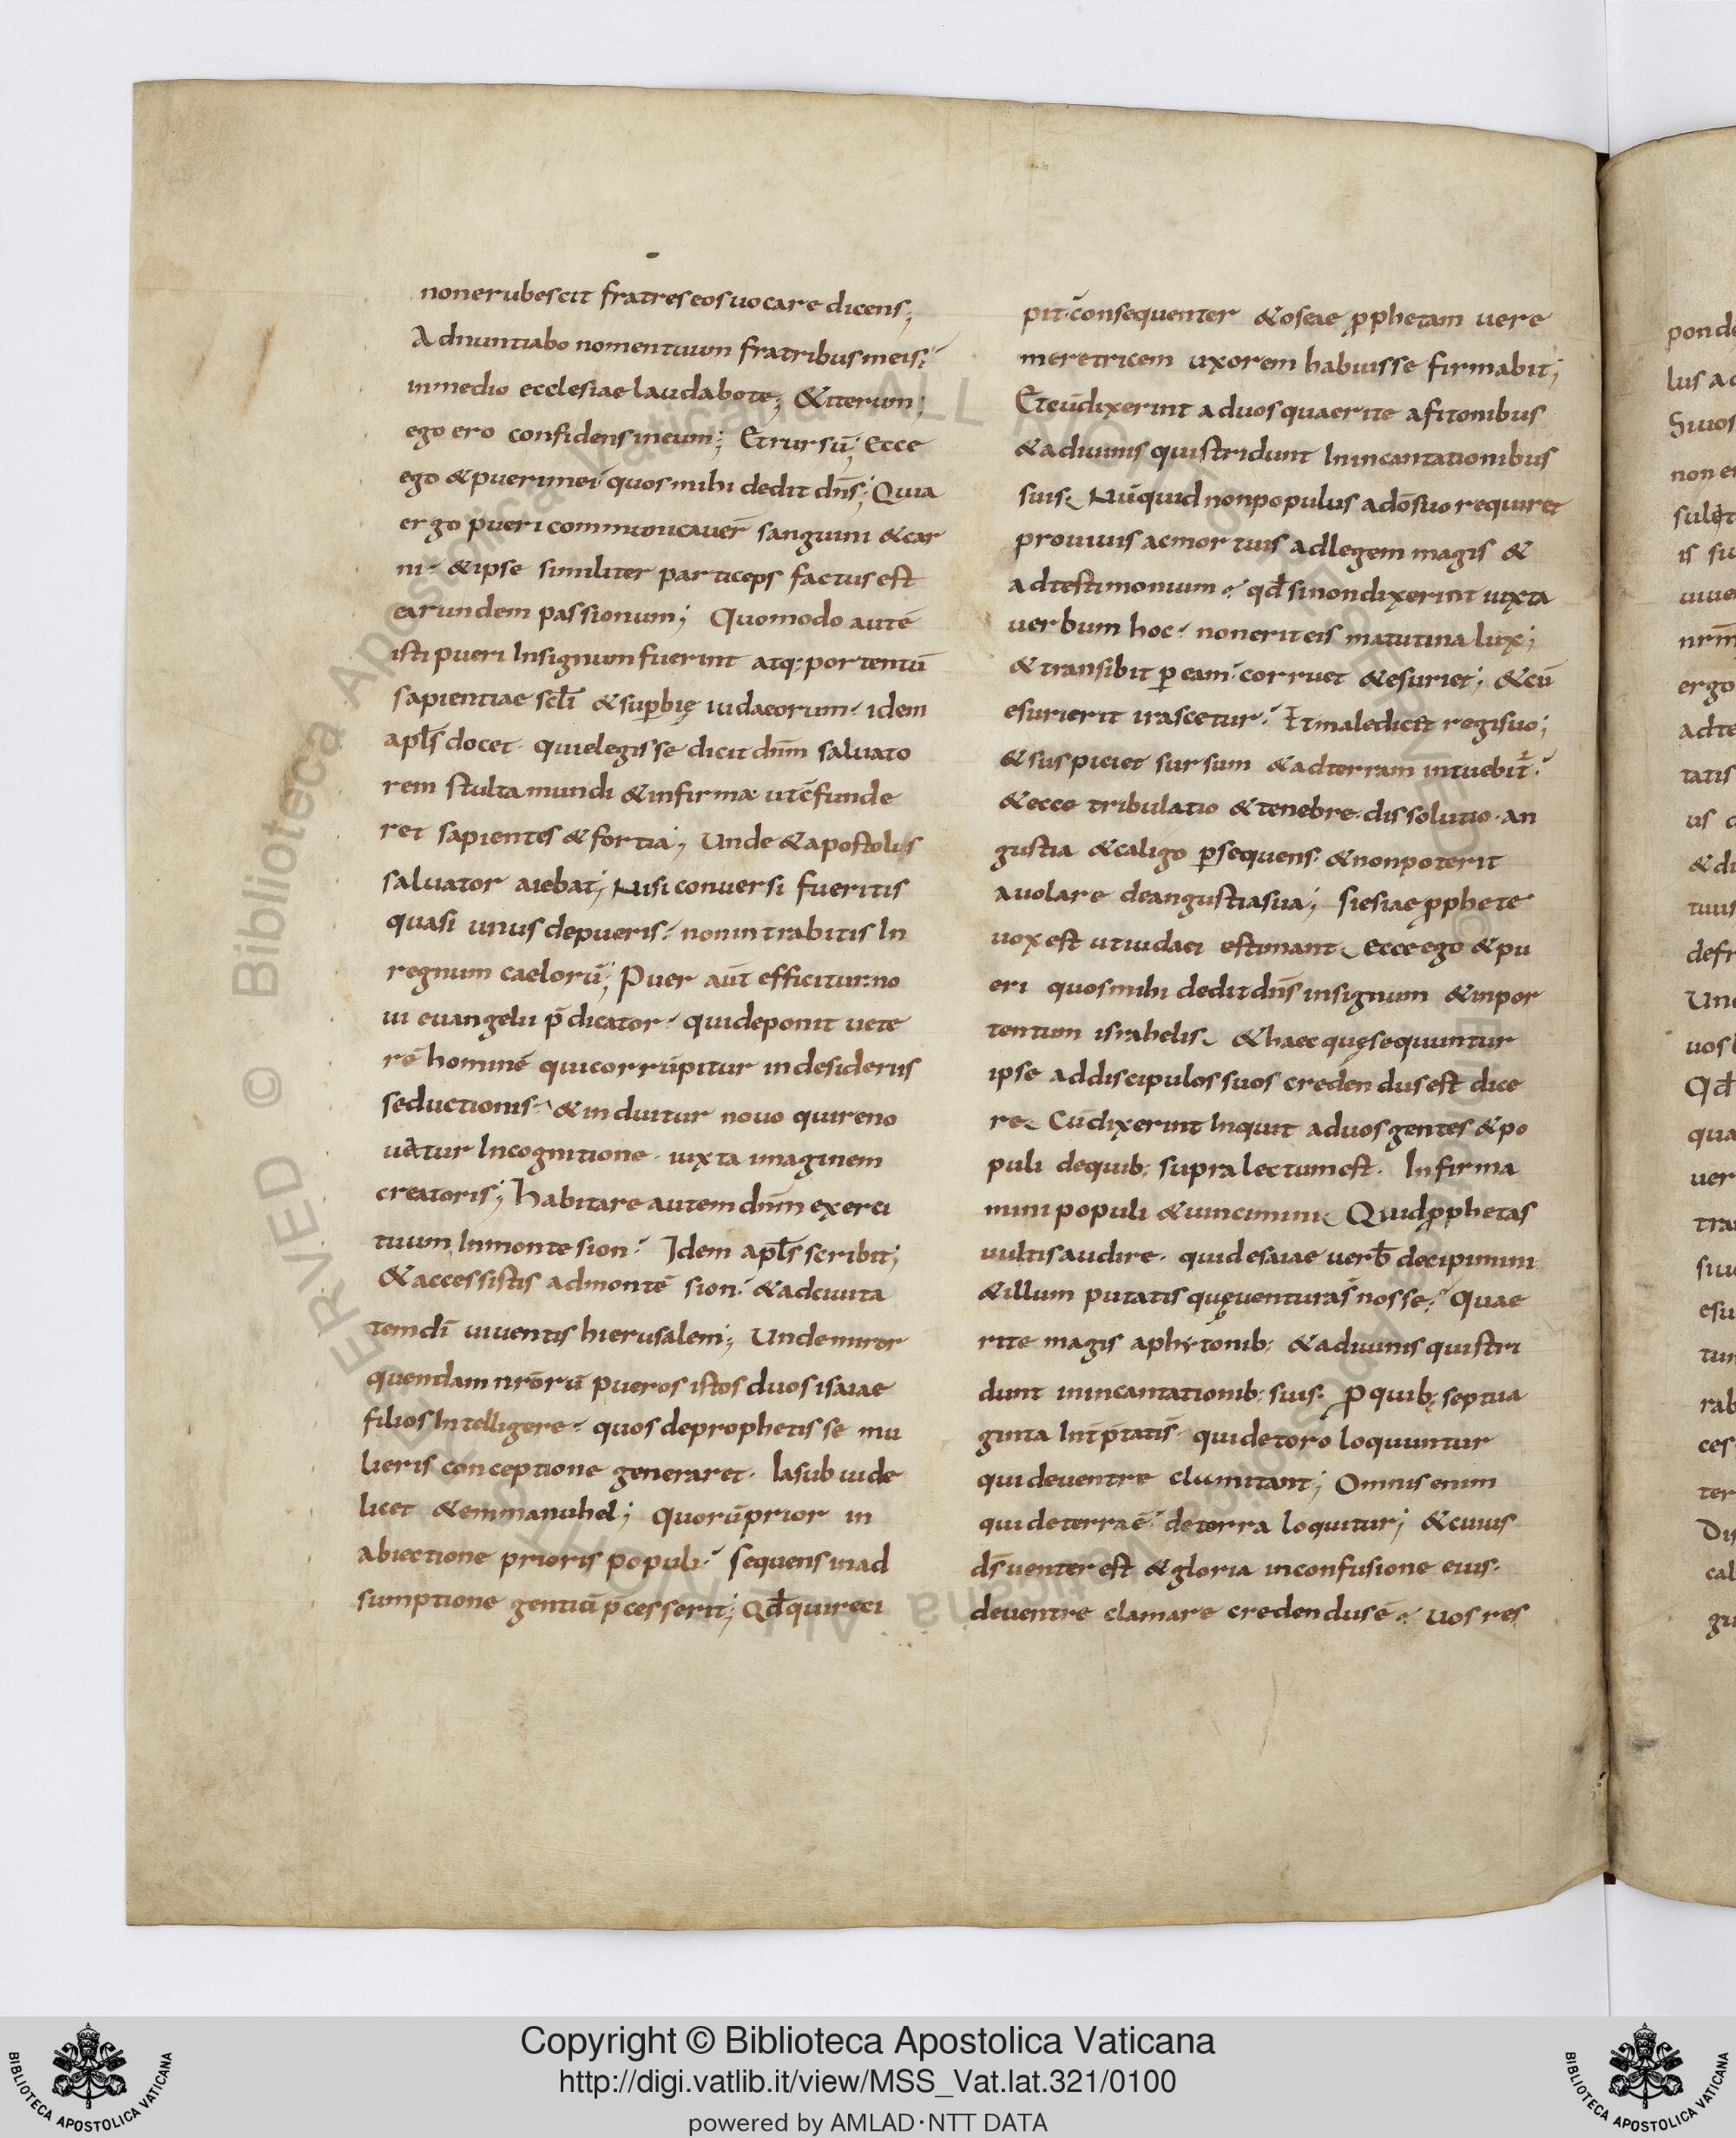 non erubescit fratres eos uocare dicens;
Adnuntiabo nomen tuum fratribus meis;
in medio ecclesiae laudabo te; & iterum;
ego ero confidens in eum; Et rursū; Ecce
ego & pueri mei quos mihi dedit dn̄s; Quia
ergo pueri communicauer̄ sanguini & car
ni & ipse similiter particeps factus est
earundem passionum; Quomodo autē
isti pueri In signum fuerint atq; portentū
sapientiae sc̄li & sup̱bię iudaeorum idem
apl̄s docet quielegisse dicit dn̄m saluato
rem stulta mundi & infirma ut c̄funde
ret sapientes & fortia; Unde & apostolus
saluator aiebat; Nisi conuersi fueritis
quasi unus de pueris non intrabitis In
regnum caelorū; Puer aūt efficitur no
ui euangelii p̄dicator qui deponit uete
rē hominē qui corrūpitur in desideriis
seductionis & induitur nouo qui reno
uatur In cognitione iuxta imaginem
creatoris; habitare autem dn̄m exerci
tuum In monte sion Idem apl̄s scribit;
& accessistis ad montē sion & ad ciuita
tem dī uiuentis hierusalem; Unde miror
quendam nr̄orū pueros istos duos isaiae
filios Intelligere quos de prophetisse mu
lieris conceptione generaret Iasub uide
licet & emmanuhel; quorū prior in
abiectione prioris populi sequens in ad
sumptione gentiū p̄cesserit; Qd̄ qui reci
pit c̄onsequenter & oseae p̱phetam uere
meretricem uxorem habuisse firmabit;
Et cū dixerint ad uos quaerite a fitonibus
& a diuinis qui stridunt In incantationibus
suis Nūquid non populus a dō suo requiret
pro uiuis ac mortuis ad legem magis &
ad testimonium qd̄ si non dixerint iuxta
uerbum hoc non erit eis matutina lux;
& transibit p̱ eam corruet & esuriet; & cū
esurierit irascetur Et maledicet regi suo;
& suspiciet sursum & ad terram intuebit̄
& ecce tribulatio & tenebre dissolutio an
gustia & caligo p̱sequens & non poterit
auolare de angustia sua; si esiae p̱phete
uox est ut iudaei estimant Ecce ego & pu
eri quos mihi dedit dn̄s in signum & in por
tentum israhelis & haec quę sequuntur
ipse ad discipulos suos credendus est dice
re Cū dixerint Inquit ad uos gentes & po
puli de quib; supra lectum est Infirma
mini populi & uincimini Quid p̱phetas
uultis audire quid esaiae uerb̄ decipimini
& illum putatis quę uentura s̄ nosse Quae
rite magis a phytonib; & a diuinis qui stri
dunt in incantationib; suis P̱ quib; septua
ginta Int̄p̄tati s̄ qui de toro loquuntur
qui de uentre clamitant; Omnis enim
qui de terra ē de terra loquitur; & cuius
dš uenter est & gloria in confusione eius
de uentre clamare credendus ē uos res